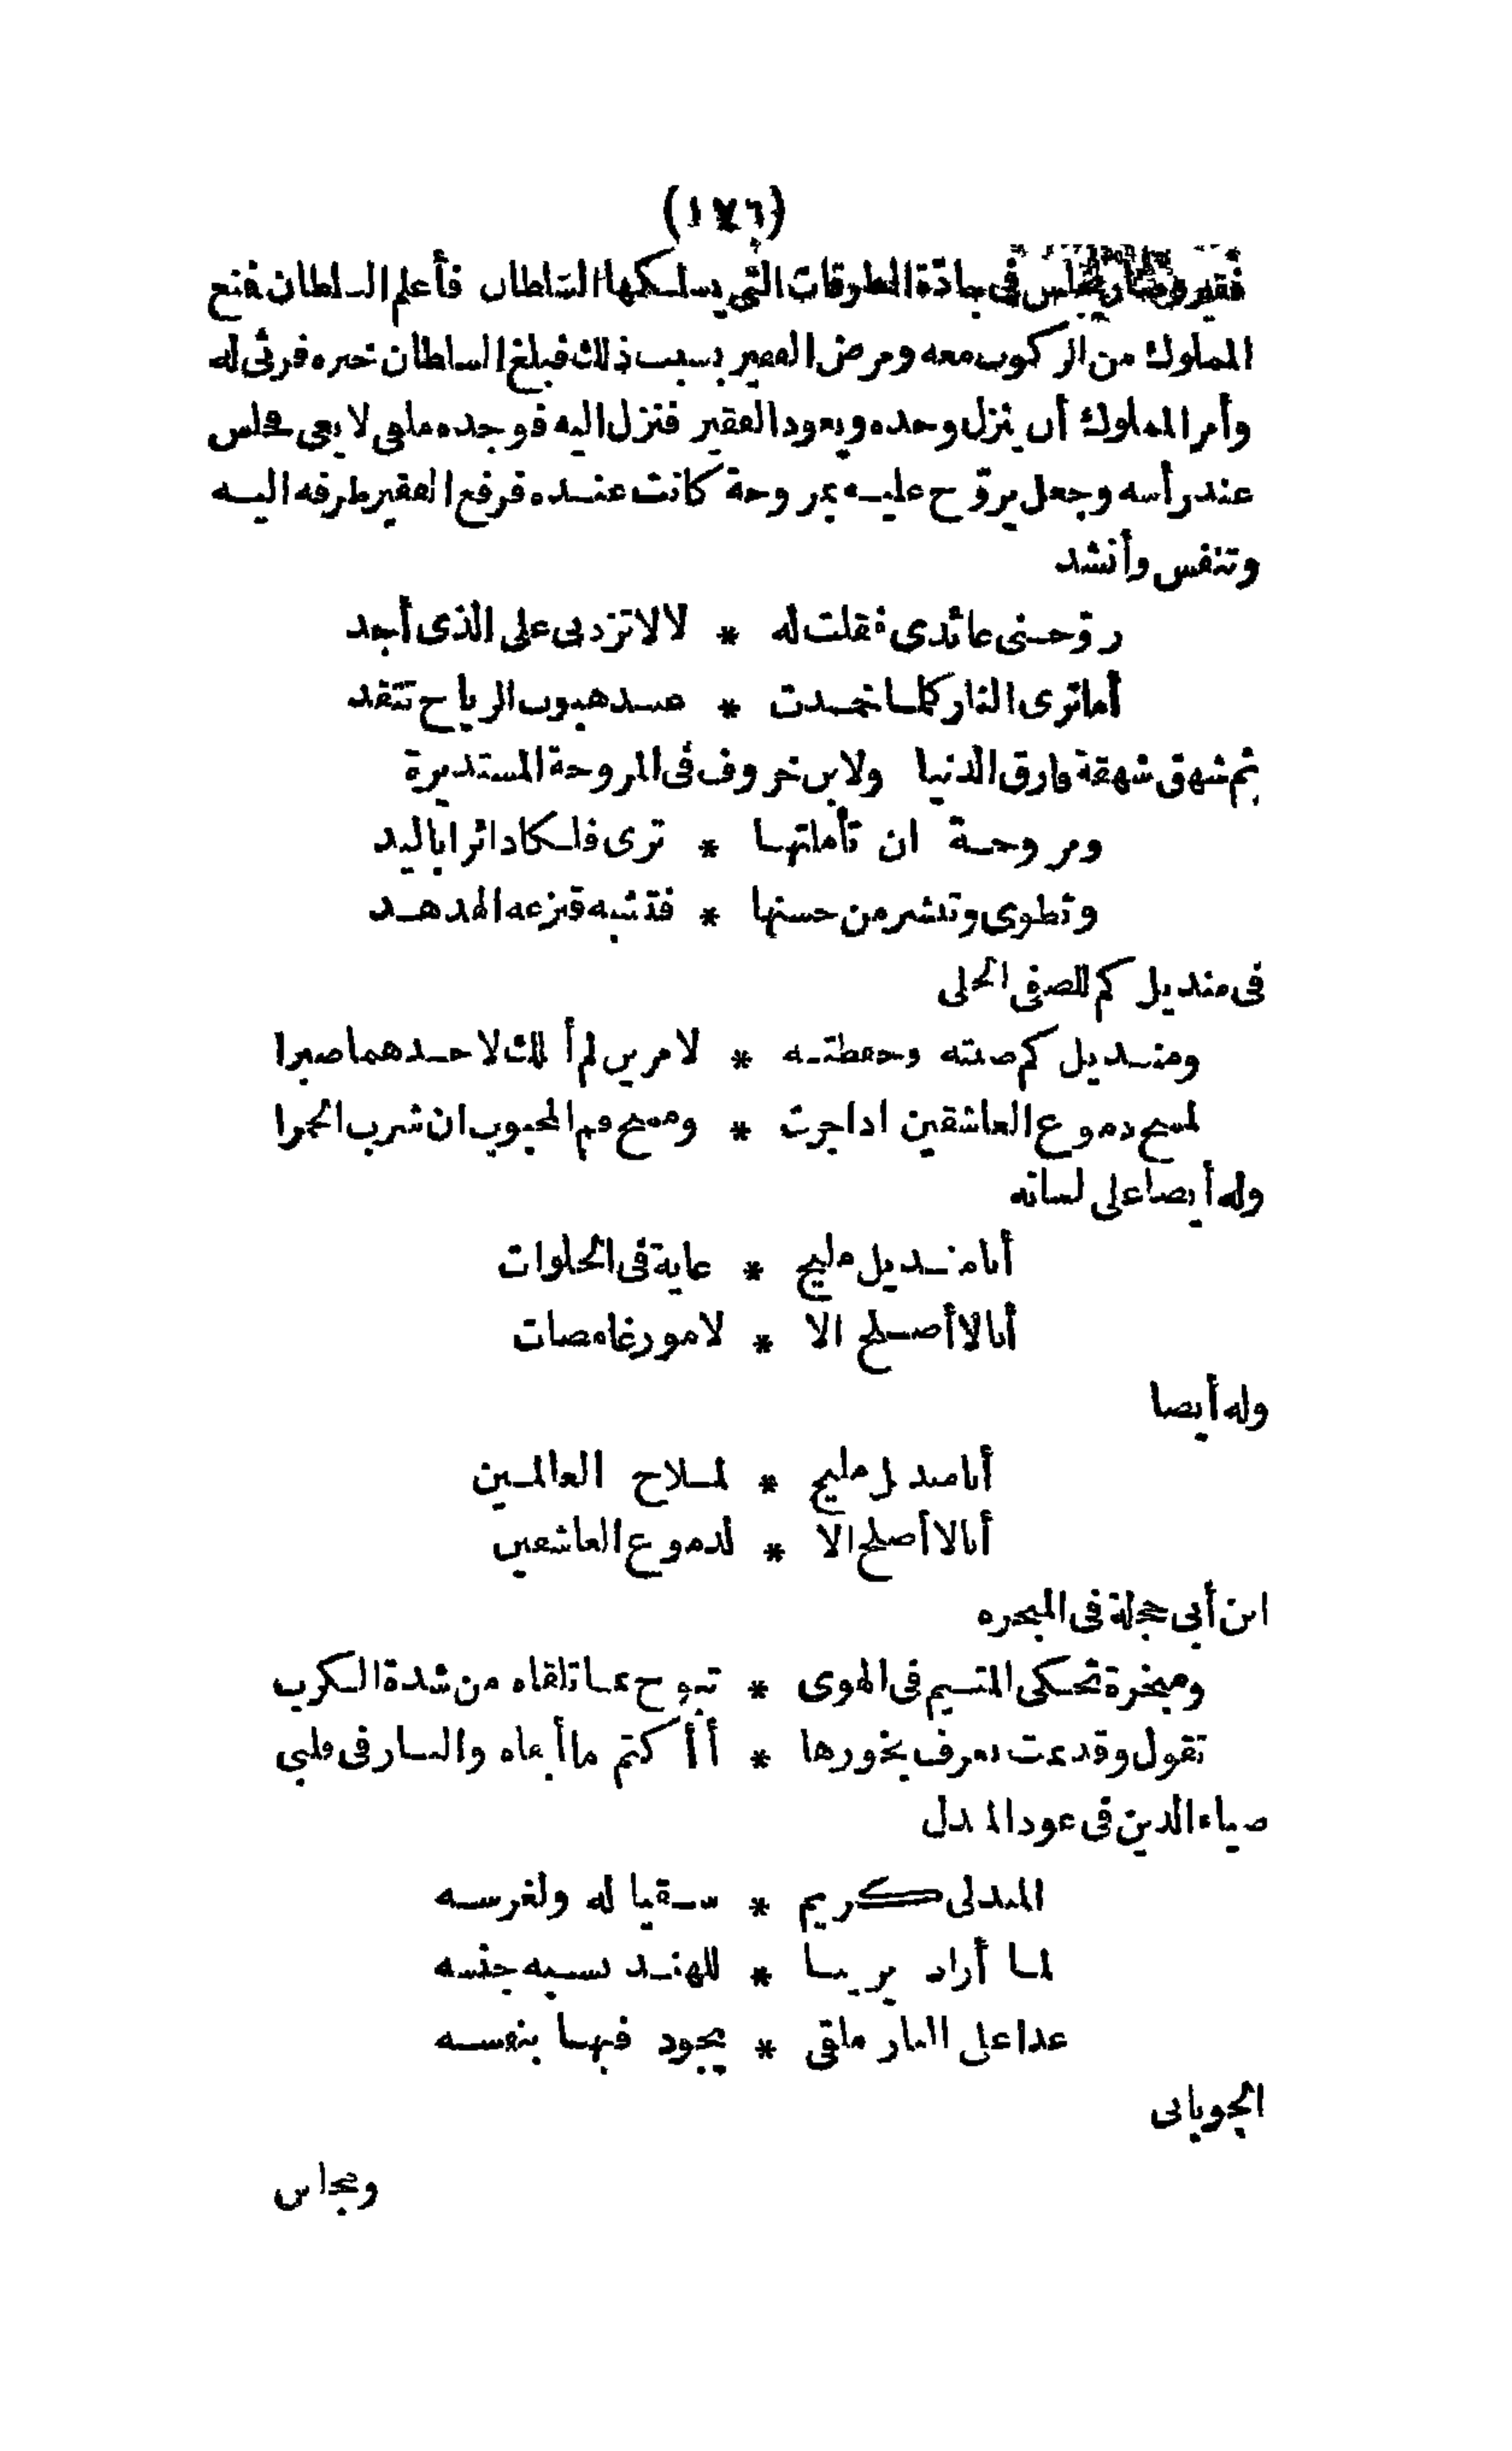 (١٧٦)
فقير وصار يجلس فى جادّة الطرقات التى يسلكها السلطان فأعلم السلطان فمنع
المملوك من الركوب معه ومرض الفقير بسبب ذلك فبلغ السلطان خبره فرثى له
وأمر المملوك أن ينزل وحده ويعود الفقير فنزل اليه فوجده ملقى لا يعى فجلس
عند رأسه وجعل يروّح عليه بمروحة كانت عنده فرفع الفقير طرفه اليه
وتنفس وأنشد
روّحنى عائدى فقلت له * لا لا تزدنى على الذى أجد
أما ترى النار كلما خمدت * عند هبوب الرياح تتقد
ثم شهق شهقة فارق الدنيا ولابن خروف فى المروحة المستديرة
ومروحة ان تأملتها * ترى فلكا دائرا باليد
وتطوى وتنشر من حسنها * فتشبه قنزعه الهدهد
فى منديل كم للصفى الحلى
ومنديل كم صنته وحفظته * لامرين لم أملك لاحدهما صبرا
لمسح دموع العاشقين اذا جرت * ومسح فم المحبوب ان شرب الخمرا
وله أيضا على لسانه
أنا منديل مليح * غاية فى الخلوات
أنا لا أصلح الا * لامور غامضات
وله أيضا
أنا منديل مليح * لملاح العالمين
أنا لا أصلح الا * لدموع العاشقين
ابن أبى حجلة فى المبخره
ومبخرة تحكى المتيم فى الهوى * تبوح بما تلقاه من شدة الكرب
تقول وقد نمت بعرف بخورها * أأكتم ما ألقاه والنار فى قلبى
ضياء الدين فى عود المندل
المندلى كريم * سقيا له ولغرسه
لما أراد يرينا * للهند نسبه جنسه
غدا على النار ملقى * يجود فيها بنفسه
الجوبانى
ومجلس